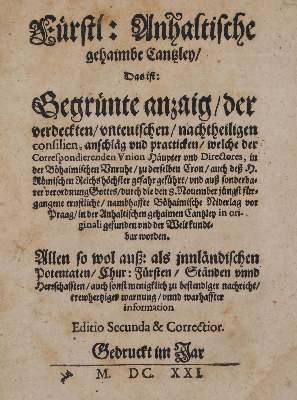 Fürstl: Anhaltische
gehaimbe Cantzley/
Das ist:
Begrünte anzaig/ der
verdeckten/ vnteutschen/ nachtheiligen
consilien, anschläg vnd practicken/ welche der
Correspondierenden Vnion Häupter vnd Directores, in
der Böhaimischen Vnruhe/ zu derselben Cron/ auch deß H.
Römischen Reichs höchster gefahr geführt/ vnd auß sonderba-
rer verordnung Gottes/ durch die den 8. Nouember jüngst für-
gangene ernstliche/ namhaffte Böhaimische Niderlag vor
Praag/ in der Anhaltischen gehaimen Cantzley in ori-
ginali gefunden vnd der Welt kundt-
bar worden.
Allen so wol auß: als jnnländischen
Potentaten/ Chur: Fürsten/ Ständen vnnd
Herrschafften/ auch sonst menigklich zu bestendiger nachricht/
trewhertziger warnung/ vnnd warhaffter
information
Editio Secunda & Correctior.
Gedruckt im Jar
M. DC. XXI.